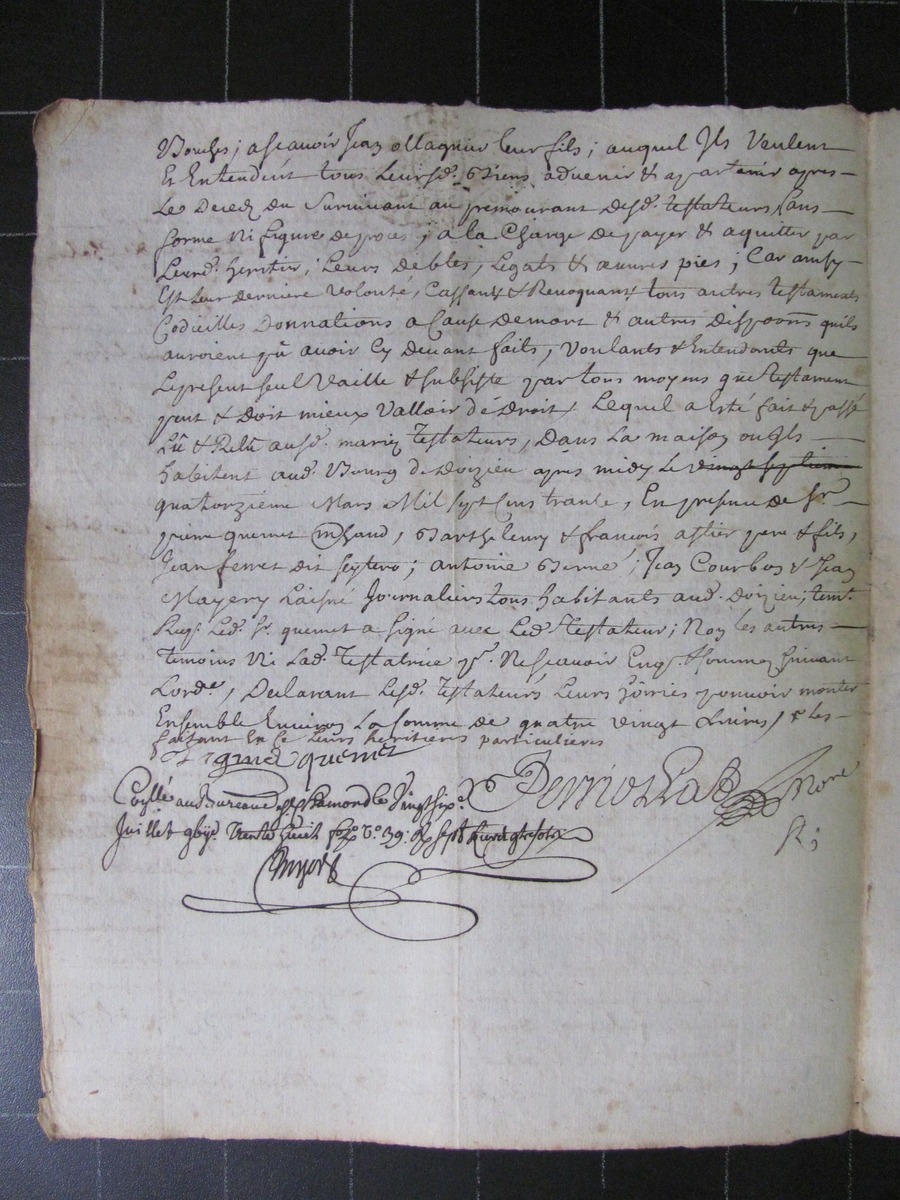 Bouches; ascavoir Jean Magnin leur fils; auquel Ils Veulent
Et Entendent tous Leursd. Biens advenir & apartenir apres
Le Deced du Survivant au premourant desd. testateurs sans
forme Ni figure de proces; a la Charge de payer & aquitter par
Leurd. heritier; Leurs debtes, Legats & œuvres pies; Car ainsy
Est leur derniere Volonté, Cassants & Revoquants tous autres testaments
Codicilles Donnations a Cause de mort & autres disposons quils
auroient pû avoir Cy devant faits, Voulants & Entendants que
Lepresent seul Vaille & subsiste par tous moyens que testament
peut & Doit mieux Valloir de Droit, Lequel a Esté fait & passé
Lû & Relû ausd. mariez Testateurs, Dans La maison ou Ils
habitent aud. Bourg de Doizieu apres midy Le vingt septieme
quatorzième Mars Mil sept Cens trante, En presence de Sr.
pierre quemet, Barthelemy & françois astier pere & fils,
Jean ferret dit; antoine; Jean Courbon & Jean
Mayery Laisné Journaliers tous habitants aud. Doizieu; tem.
Led. Sr. quemet a signé avec Led. Testateur; Non les autres
temoins Ni Lad. Testatrice pr. Ne scavoir Enq. & sommez suivant
Lorde, Declarant Lesd. testateurs Leurs pouvoir monter
Ensemble Environ La somme de quatre Vingt Livres, & les
faisant En Ce Leurs heritieres particulieres
quemet
au Bureau de st Chamond le Vingt six
Juillet trente huit fo. 39.